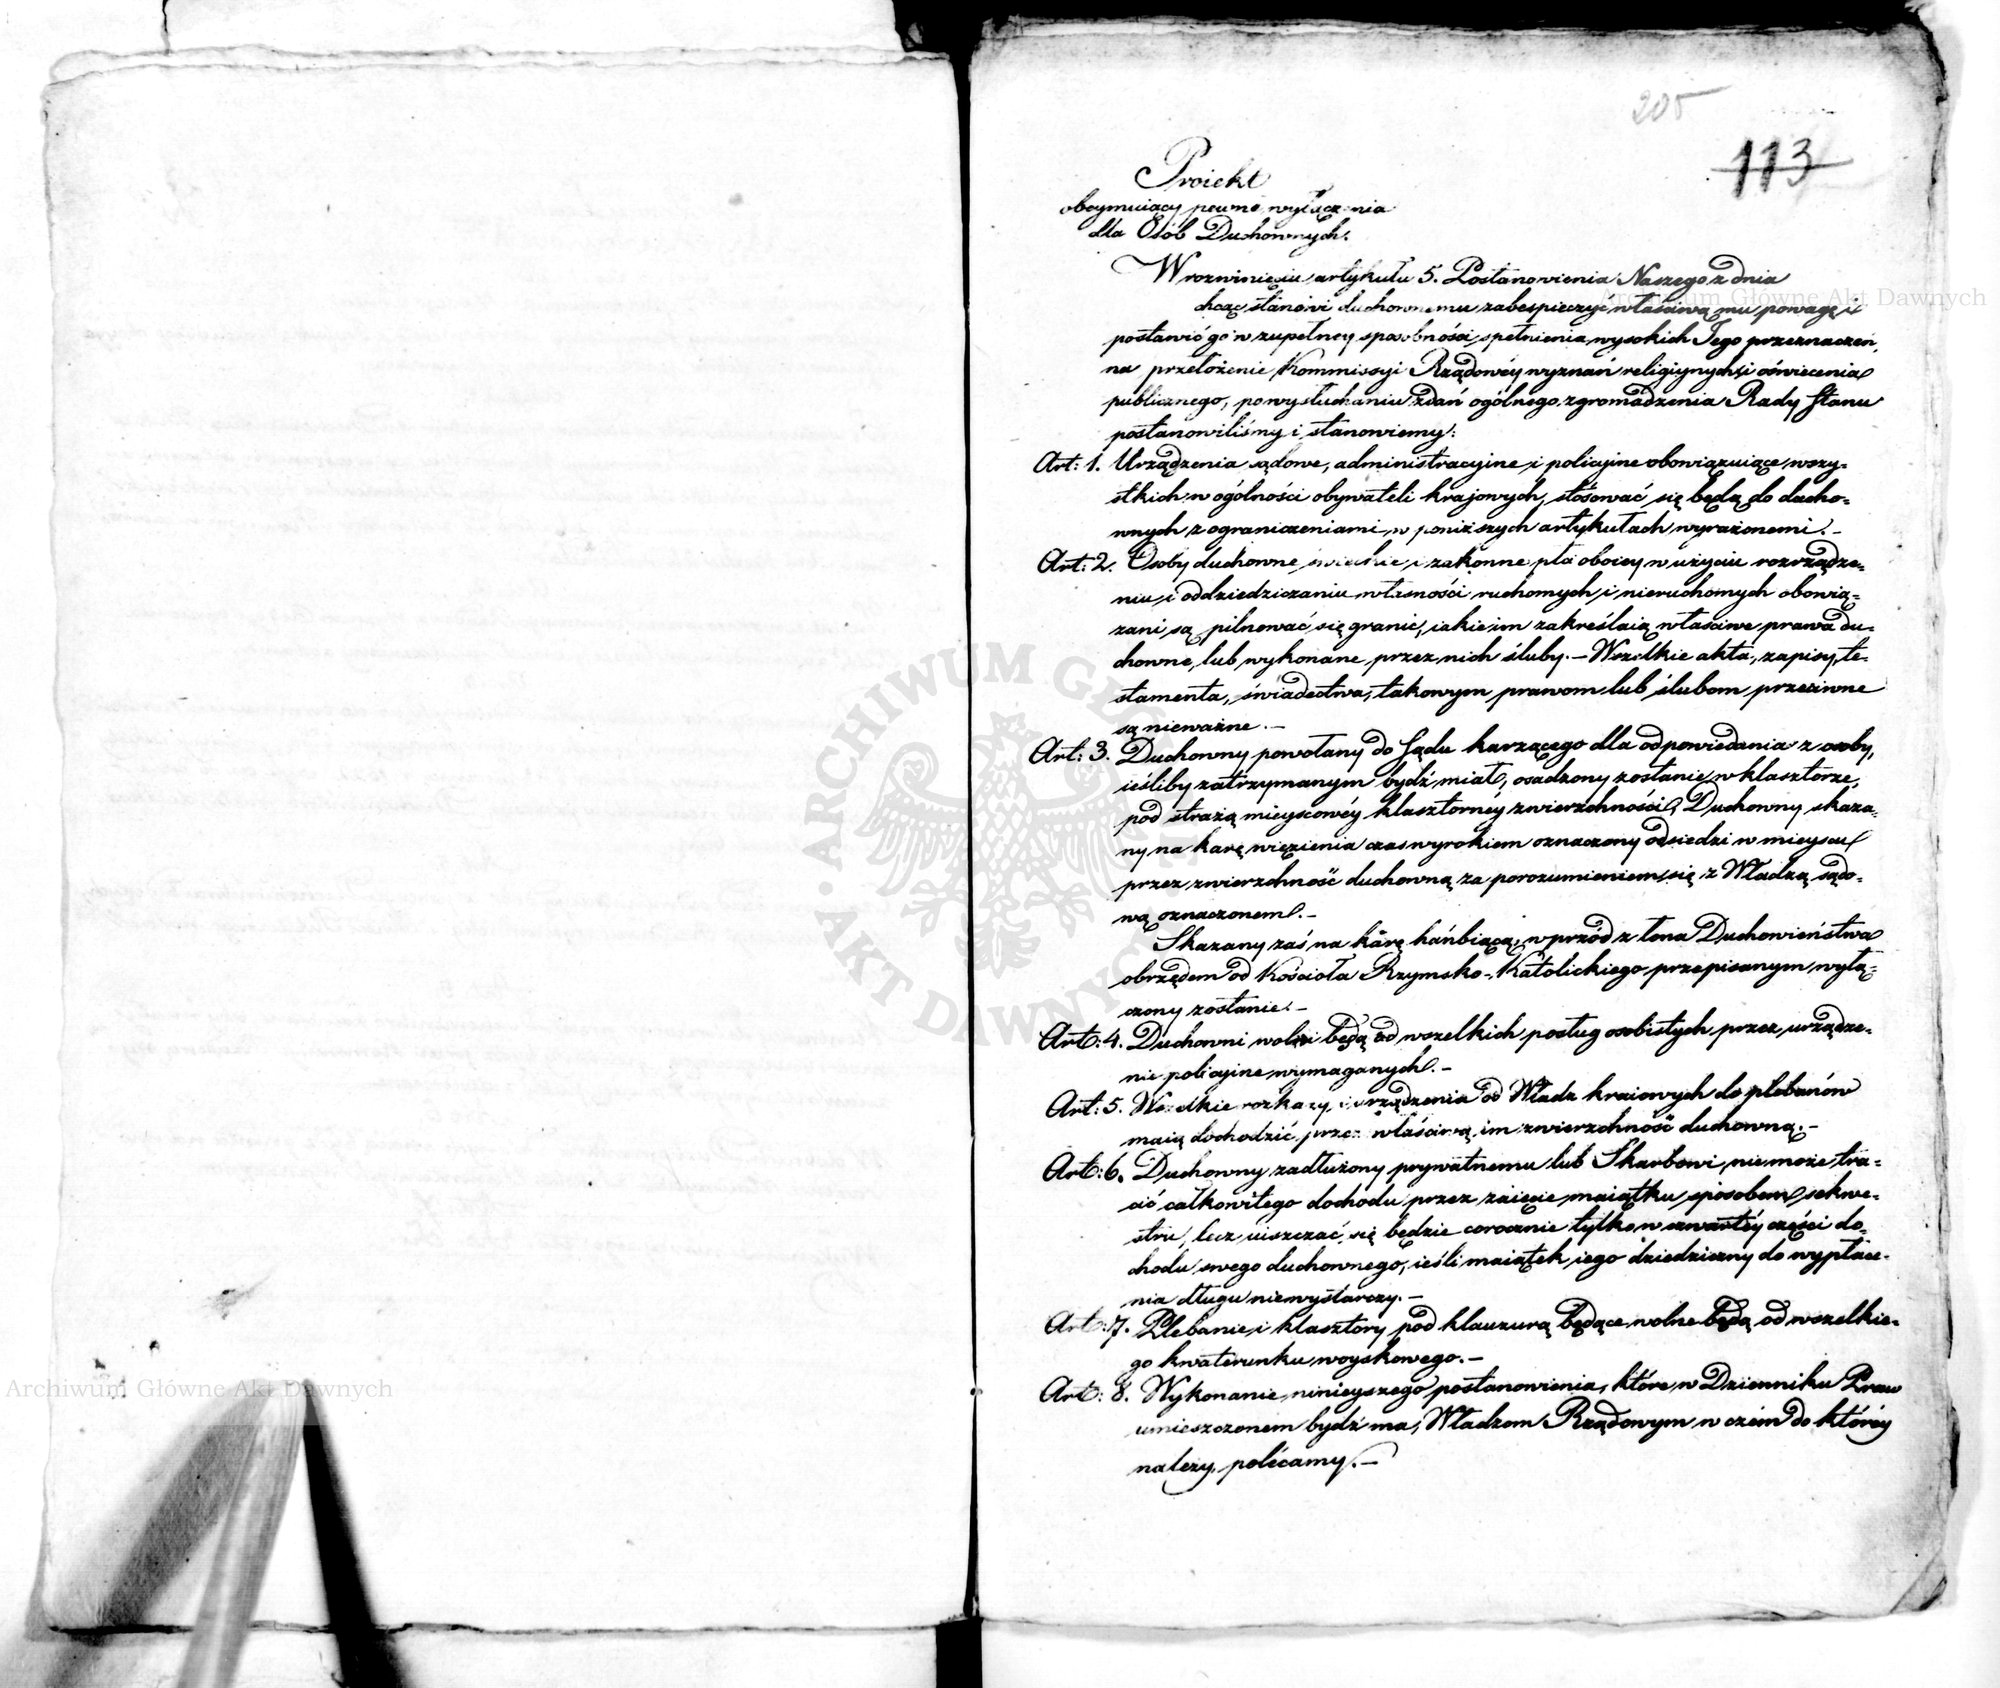 205
113
Proiekt
obeymuiący pewne wyłączenia
dla Osób Duchownych.
W rozwinięciu artykułu 5. Postanowienia Naszego z dnia
chcąc stanowi duchownemu zabespieczyć właściwą mu powagę i
postawić go w zupełney sposobności spełnienia wysokich Jego przeznaczeń,
na przełożenie Kommissyi Rządowéy wyznań religiynych i oświecenia
publicznego, po wysłuchaniu zdań ogólnego zgromadzenia Rady Stanu
postanowiliśmy i stanowiemy:
Art: 1. Urządzenia sądowe, administracyine i policyine obowiązuiące wszy-
stkich w ogólności obywateli krajowych, stósować się będą do ducho-
wnych z ograniczeniami w poniższych artykułach wyrażonemi.-
Art: 2. Osoby duchowne świeckie i zakonne płci oboiey w użyciu rozrządze-
niu i oddziedziczaniu własności ruchomych i nieruchomych obowią-
zani są pilnować się granic, iakie im zakréślaią właściwe prawa du-
chowne, lub wykonane przez nich śluby.- Wszelkie akta, zapisy te-
stamenta, świadectwa, takowym prawom lub ślubom przeciwne
są nieważne.-
Art: 3. Duchowny powołany do Sądu karzącego dla odpowiedania z osoby,
ieśliby zatrzymanym bydź miał, osadzony zostanie w klasztorze,
pod strażą mieyscowéy klasztornéy zwierzchności, Duchowny skaza-
ny na karę więzienia czas wyrokiem oznaczony odsiedzi w mieyscu
przez zwierzchność duchowną za porozumieniem się z Władzą sądo-
wą oznaczonem.-
Skazany zaś na karę hańbiącą, wprzód z łona Duchowieństwa
obrzędem od Kościoła Rzymsko-Katolickiego przepisanym wyłą-
czony zostanie.-
Art: 4. Duchowni wolni będą od wszelkich posług osobistych przez urządze-
nie policyine wymaganych.-
Art: 5. Wszelkie rozkazy i urządzenia od Władz kraiowych do plebanów
maią dochodzić przez właściwą im zwierzchność duchowną.-
Art: 6. Duchowny zadłużony prywatnemu lub Skarbowi, nie może tra-
cić całkowitego dochodu przez zaięcie maiątku sposobem sekwe-
stru, lecz uiszczać się będzie corocznie tylko w czwartéy części do-
chodu swego duchownego, ieśli maiątek iego dziedziczny do wypłace-
nia długu niewystarczy.-
Art: 7. Plebanie i klasztory pod klauzurą będące wolne będą od wszelkie-
go kwaterunku woyskowego.-
Art: 8. Wykonanie ninieyszego postanowienia, które w Dzienniku Praw
umieszczonem bydź ma, Władzom Rządowym w czém do któréy
należy, polécamy.-
Archiwum Główne Akt Dawnych
Archiwum Główne Akt Dawnych
ARCHIWUM GŁÓWNE AKT DAWNYCH